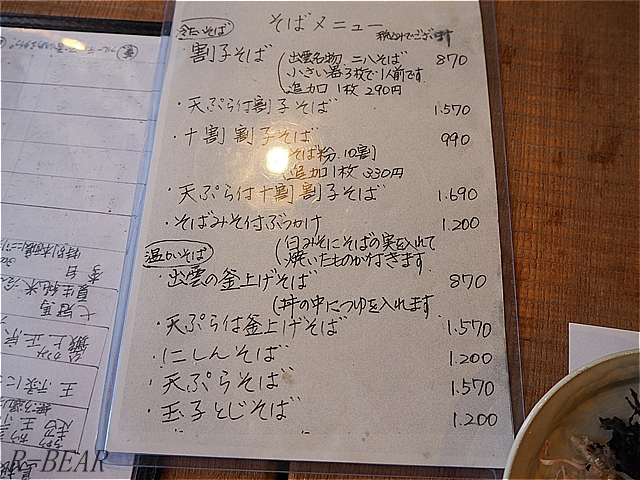 そばメニュー
税込みでございます
冷たいそば
・割子そば 870
(出雲名物 二八そば
小さい器3枚で1人前です
追加1枚 290円
・天ぷら付割子そば 1.570
・十割 割子そば 990
そば粉 10割
追加1枚 330円
・天ぷら付十割 割子そば 1.690
・そばみそ付ぶっかけ 1.200
(白みそにそばの実を入れて
焼いたものが付きます
温かいそば
・出雲の釜上げそば 870
(丼の中につゆを入れます
・天ぷら付釜上げそば 1.570
・にしんそば 1.200
・天ぷらそば 1.570
・玉子とじそば 1.200
R-BEAR